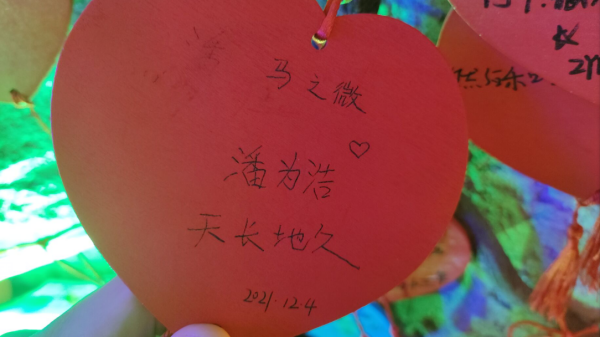 马之微
♡
潘为浩
天长地久
2021.12.4
长